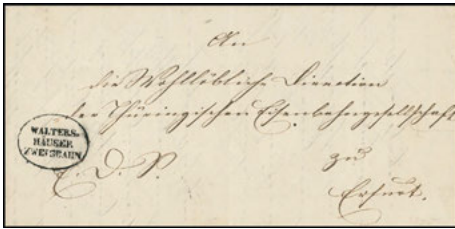 An
die Wohllöbliche Direction
der Thüringischen Eisenbahngesellschaft
WALTERS-
HÄUSER
ZWEIGBAHN
E. D. S.
zu
Erfurt.